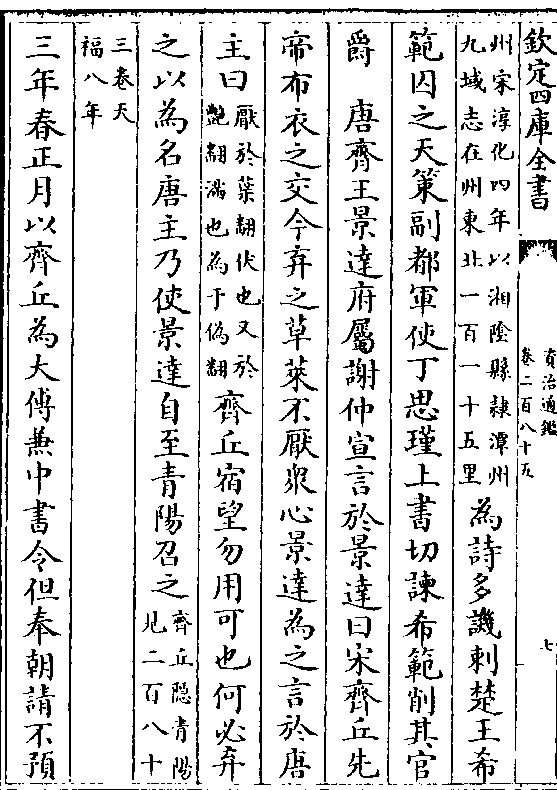 欽定四庫全書
資治通鑑
卷二百八十五
七
州宋淳化四年以湘陰縣隷潭州
九域志在州東北一百一十五里
為詩多譏刺楚王希
範囚之天策副都軍使丁思瑾上書切諫希範削其官
爵　唐齊王景達府屬謝仲宣言於景達曰宋齊丘先
帝布衣之交今弃之草萊不厭衆心景達為之言於唐
主曰
厭於葉翻伏也又於
艷翻滿也為于偽翻
齊丘宿望勿用可也何必弃
之以為名唐主乃使景達自至青陽召之
齊丘隠青陽
見二百八十
三卷天
福八年
三年春正月以齊丘為大傅兼中書令但奉朝請不預